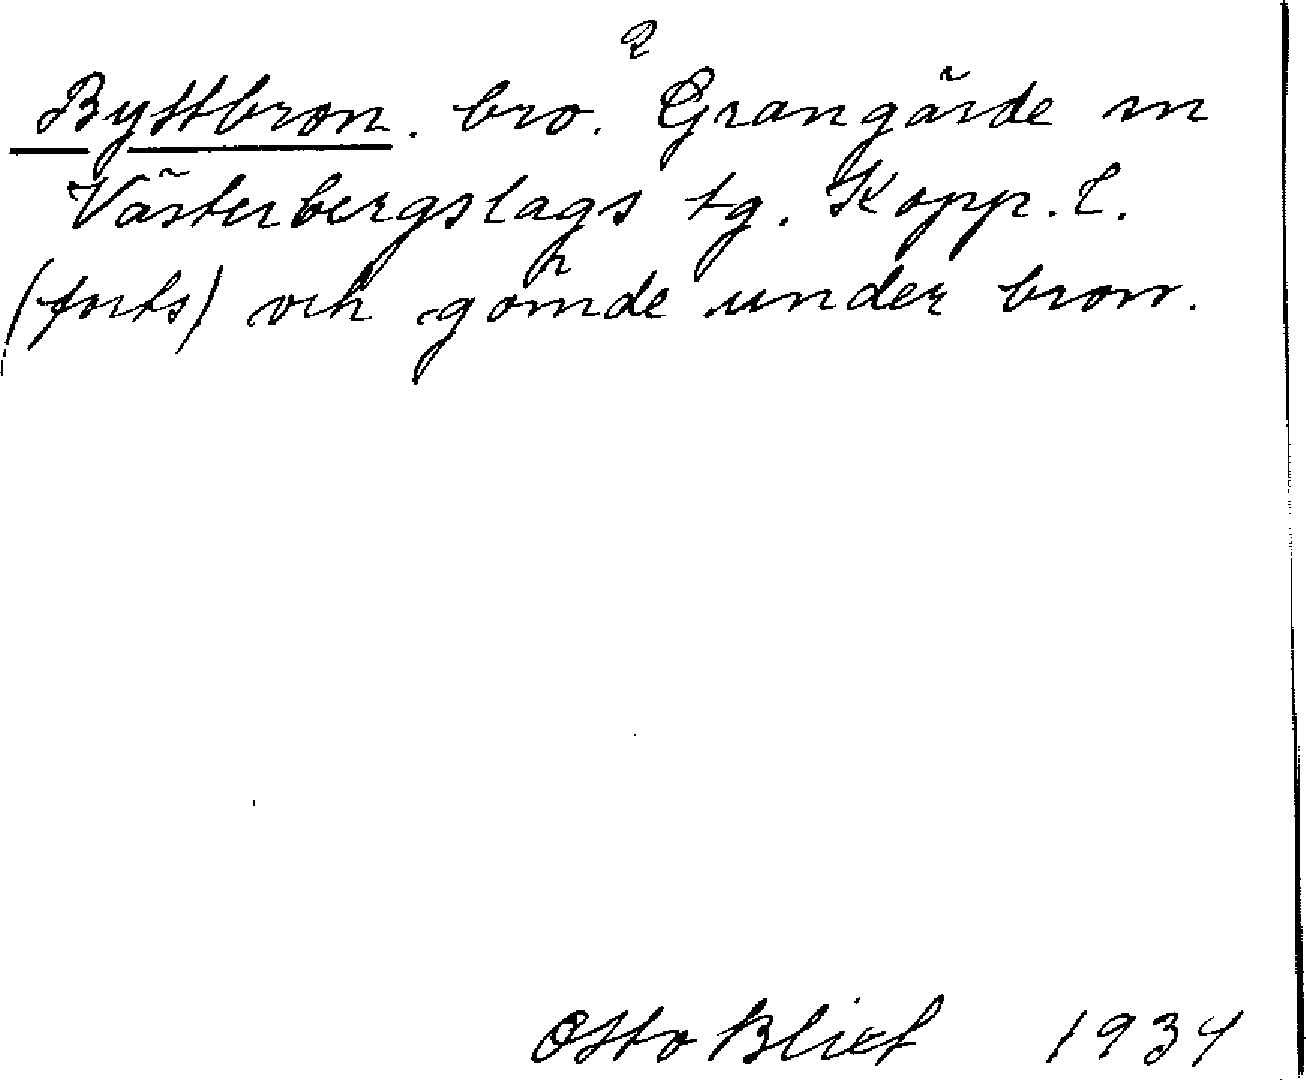 2
Byttbron. bro. Grangärde sn
Västerbergslags tg. Kopp. l.
(forts) och gömde under bron.
Otto Blixt 1934